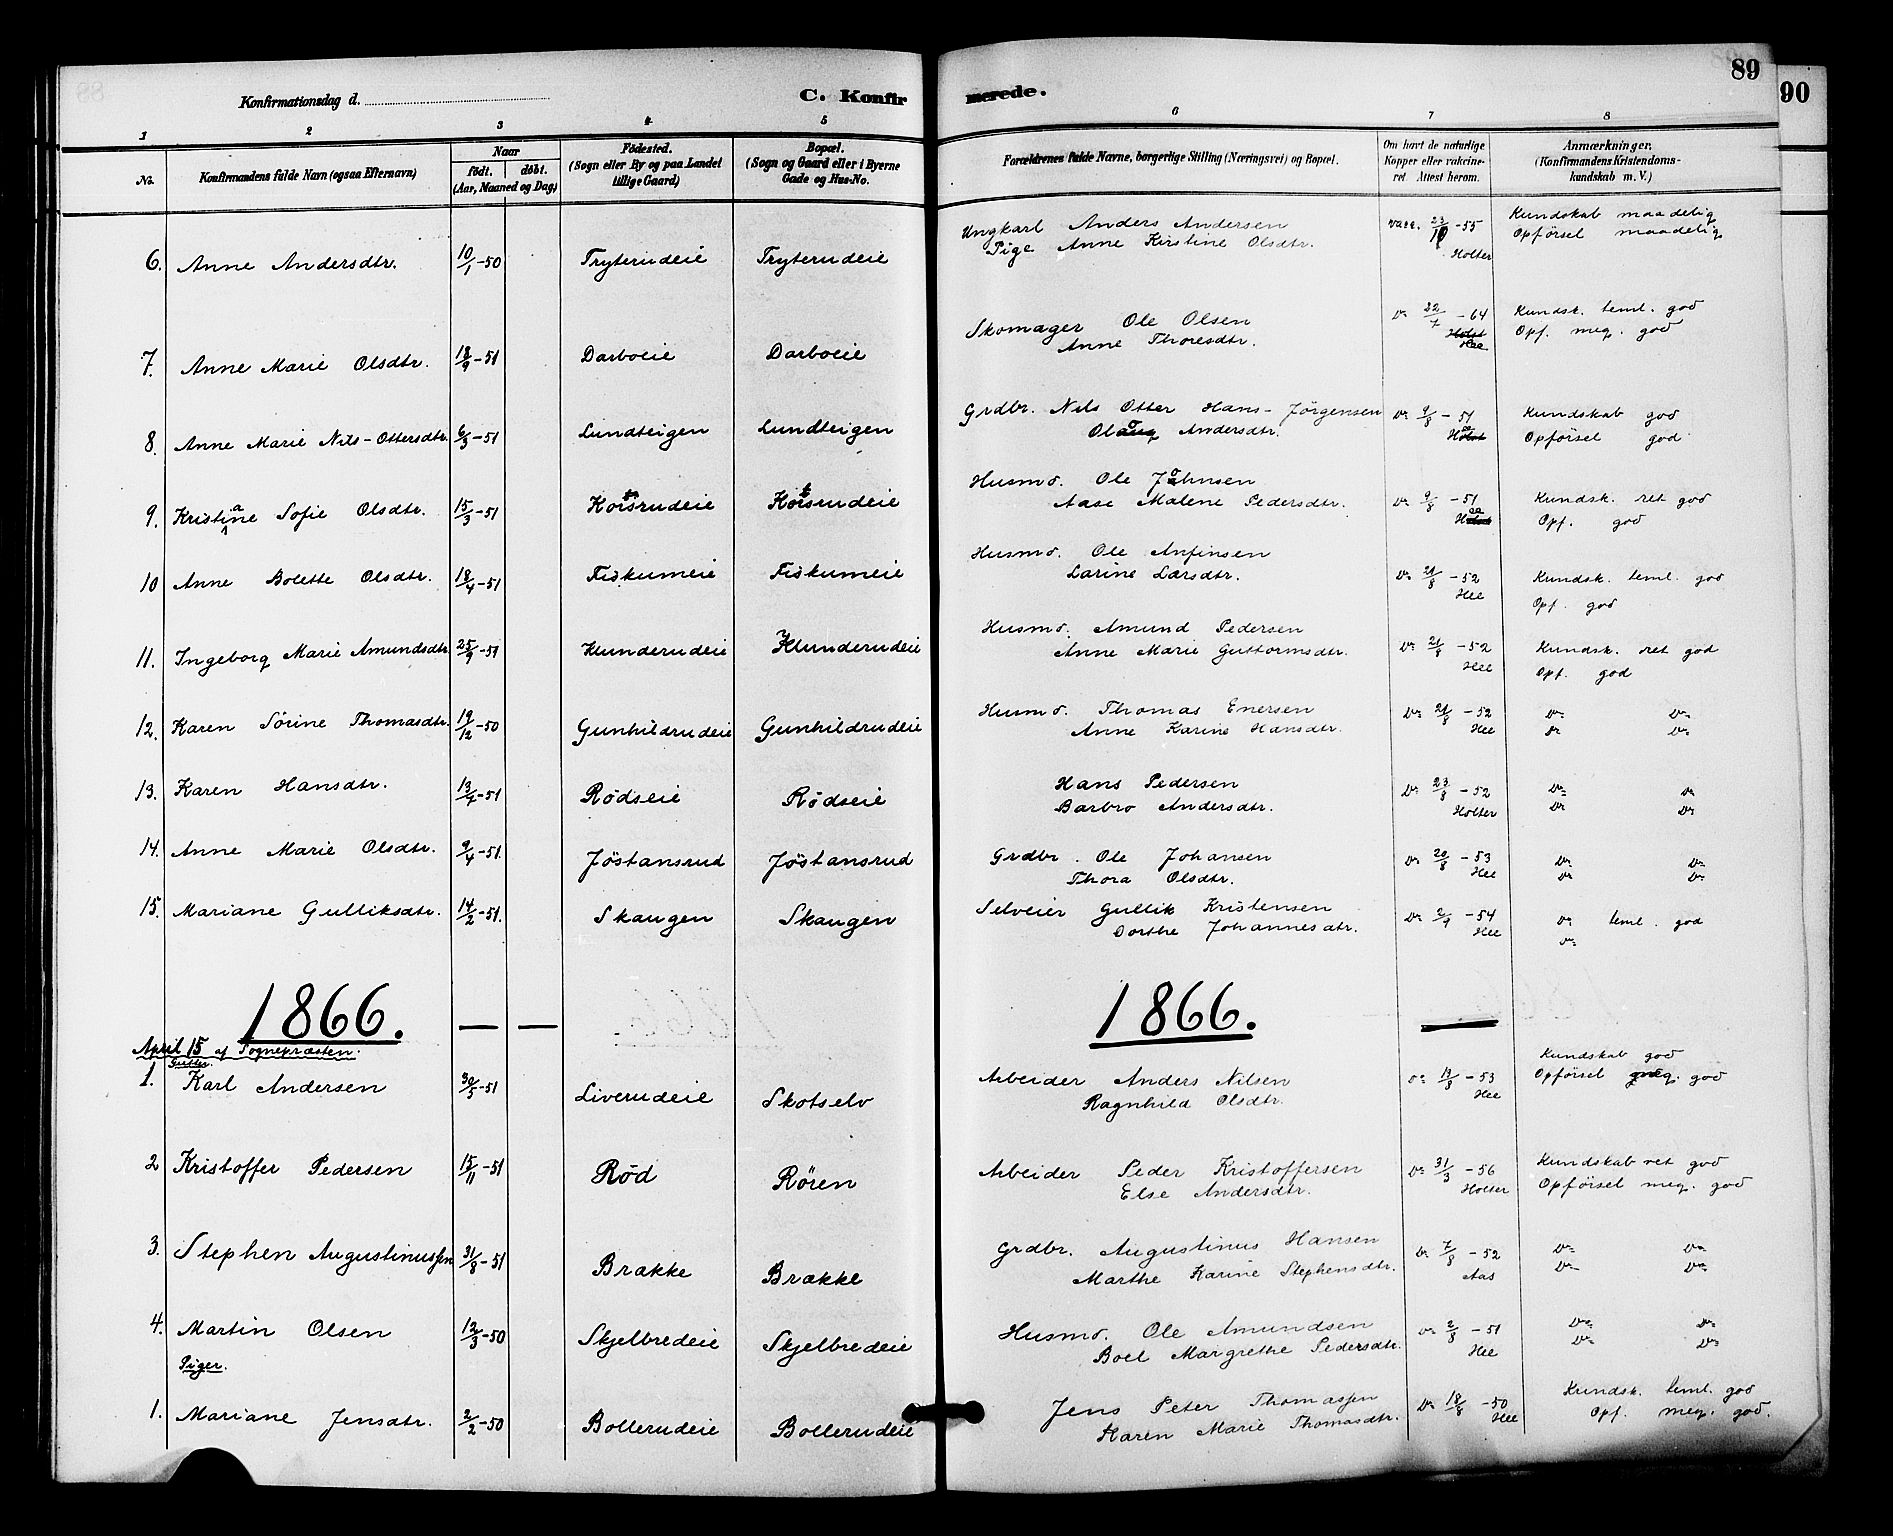 89
90
Konfirmationsdag d.
C. Konfir merede.
1 2 3 4 5 6 7 8
No.
Konfirmandens fulde Navn (ogsaa Efternavn)
Naar
født. døbt.
(Aar, Maaned og Dag)
Fødested.
(Sogn eller By og paa Landet
tillige Gaard)
Bopæl.
(Sogn og Gaard eller i Byerne
Gade og Hus-No.
Forældrenes fulde Navne, borgerlige Stilling (Næringsvei) og Bopæl.
Om havt de naturlige
Kopper eller vakcine-
ret. Attest herom.
Anmærkninger.
(Konfirmandens Kristendoms-
kundskab m. V.)
6. Anne Andersdtr. 10/1-50 Tryterudeie Tryterudeie Ungkarl Anders Andersen vacc. 23/10-55 Kundskab maadelig
Pige Anne Kirstine Olsdtr. Holter Opførsel maadelig
7. Anne Marie Olsdtr. 18/9-51 Darboeie Darboeie Skomager Ole Olsen 22/7-64 Kundsk. teml. god
Anne Thoresdtr. Hee Opf. meg. god
8. Anne Marie Nils-Ottersdtr. 6/3-51 Lundteigen Lundteigen Grdbr. Nils Otter Hans-Jørgensen 9/8-51 Kundskab god
Andersdtr. Opførsel god
9. Kristiane Sofie Olsdtr. 15/3-51 Husmd. Ole Johnsen 9/8-51 Kundsk. ret god
Aase Malene Pedersdtr. Opf. god
10 Anne Bolette Olsdtr. 18/4-51 Fiskumeie Fiskumeie Husmd. Ole Anfinsen 21/8-52 Kundsk. teml. god
Larine Larsdtr. Hee Opf. god
11. Ingeborg Marie Amundsdtr. 25/9-51 Klunderudeie Klunderudeie Husmd. Amund Pedersen 21/8-52 Kundsk. ret god
Anne Marie Guttormsdtr. Hee Opf. god
12. Karen Sørine Thomasdtr. 19/12-50 Gunhildrudeie Gunhildrudeie Husmd. Thomas Enersen 21/8-52
Anne Karine Hansdtr. Hee
13. Karen Hansdtr. 13/7-51 Rødseie Rødseie Hans Pedersen 23/8-52
Barbro Andersdtr. Holter
14. Anne Marie Olsdtr. 9/4-51. Jøstansrud Jøstansrud Grdbr. Ole Johansen 20/8-53
Thora Olsdtr. Hee
15. Mariane Gulliksdtr. 14/2-51. Skaugen Skaugen Selveier Gullik Kristensen 2/9-54 teml. god
Dorthe Johannesdtr. Hee
1866. — — 1866. —
April 15 af Sognepræsten.
Gutter.
1. Karl Andersen 30/5-51 Liverudeie Skotselv Arbeider Anders Nilsen 13/8-53 Kundskab god
Ragnhild Olsdtr. Hee Opførsel meg. god
2 Kristoffer Pedersen 15/11-51 Rød Røren Arbeider Peder Kristoffersen 31/3-56 Kundskab ret god
Else Andersdtr. Holter Opførsel meg. god
3. Stephen Augustinussen 31/8-51 Brække Brække Grdbr. Augustinus Hansen 7/8-52
Marthe Karine Stephensdtr. Aas
4. Martin Olsen 12/3-50 Skjelbredeie Skjelbredeie Husmd. Ole Amundsen 2/8-51
Boel Margrethe Pedersdtr. Hee
Piger.
1. Mariane Jensdtr. 2/2-50 Bollerudeie Bollerudeie Jens Peter Thomassen 18/8-50 Kundsk. teml. god
Karen Marie Thomasdtr. Hee Opf. meg. god.